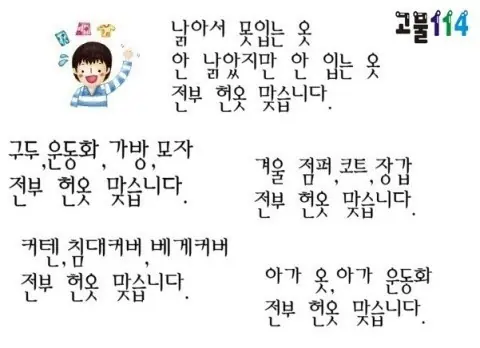 낡아서 못입는 옷
안 낡았지만 안 입는 옷
전부 헌옷 맞습니다.
고물114
구두,운동화,가방,모자
전부 헌옷 맞습니다.
겨울 점퍼,코트,장갑
전부 헌옷 맞습니다.
커텐,침대커버,베게커버
전부 헌옷 맞습니다.
아가 옷,아가 운동화
전부 헌옷 맞습니다.